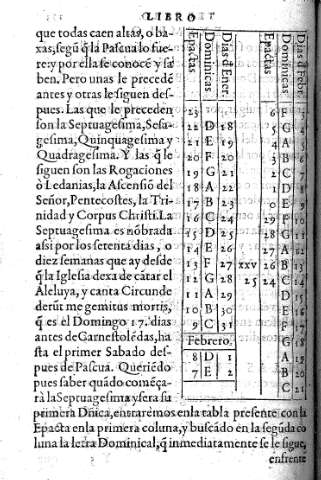 LIBRO
que todas caen altas, o ba-
xas, segũ q̃ la Pascua lo fue-
re: y por ella se conocẽ y sa
ben. Pero unas le precedẽ
antes y otras le siguen des-
pues. Las que le preceden
son la Septuagesima, Sesa-
gesima, Quinquagesima y
Quadragesima. Y las q̃ le
siguen son las Rogaciones
ò Ledanias, la Ascensiõ del
Señor, Pentecostes, la Tri-
nidad y Corpus Christi. La
Septuagesima es nõbrada
assi por los setenta dias, o
diez semanas que ay desde
q̃ la Iglesia dexa de cãtar el
Aleluya, y canta Circunde
derũt me gemitus mortis,
q̃ es el Domingo 17. dias
antes de Carnestolẽdas, ha
sta el primer Sabado des-
pues de Pascua. Queriẽdo
pues saber quãdo começa-
rà la Septuagesima y sera su
Epactas Dominicas Dias d Ener.
23
22 D 18
21 E 19
20 F 20
19 G 21
18 A 22
17 B 23
16 C 24
15 D 25
14 E 26
13 F 27
12 G 28
11 A 29
10 B 30
9 C 31
Febrero.
8 D 1
7 E 2
Epactas Dominicas Dias d Febr.
6 F 3
5 G 4
4 A 5
3 B 6
2 C 7
1 D 8
0 E 9
29 F 10
28 G 11
27 A 12
xxv 26 B 13
25 24 C 14
D 15
E 16
F 17
G 18
A 19
B 20
C 21
primera Dñica, entraremos en la tabla presente con la
Epacta en la primera coluna, y buscado en la segũda co
luna la letra Dominical, q̃ inmediatamente se le sigue,
enfrente